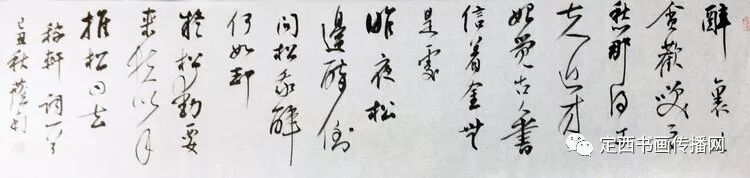 醉裏且
贪歡笑要
愁那得工
夫近来
始覺古人書
信着全無
是處
昨夜松
邊醉倒
问松我醉
何如却
疑松動要
来扶以手
推松曰去
稼軒词一首
己丑秋
定西书画传播网